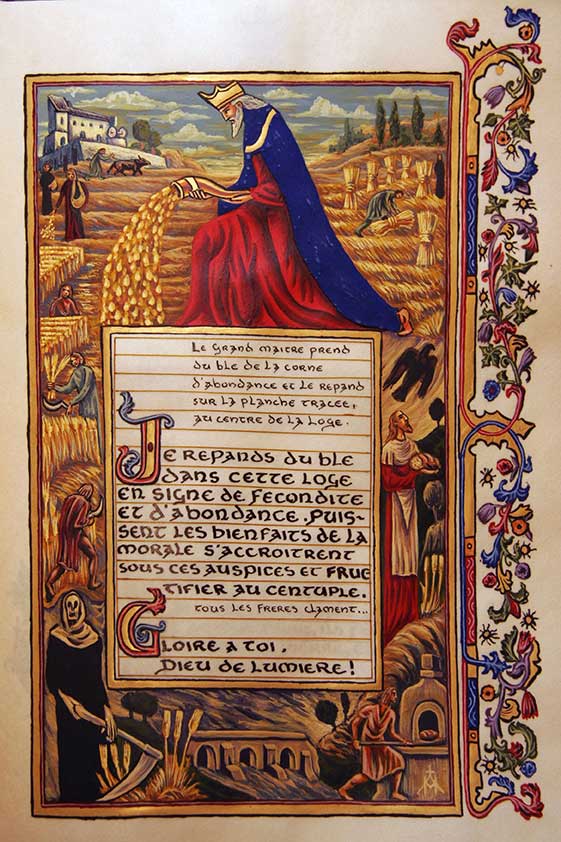 Le Grand maitre prend
du ble de la corne
d'abondance et le repand
sur la planche tracee,
au centre de la loge.
Je repands du ble
dans cette loge
en signe de fecondite
et d'abondance. Puis-
sent les bienfaits de la
morale s'accroitrent
sous ces auspices et fruc
tifier au centuple.
tous les freres clament...
Gloire a toi,
Dieu de lumiere!